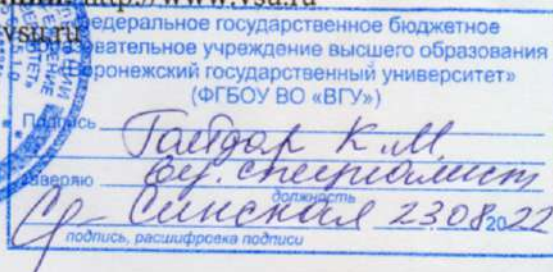 http://www.vsu.ru
vsu.ru
едеральное государственное бюджетное
овательное учреждение высшего образования
оронежский государственный университет»
(ФГБОУ ВО «ВГУ»)
Подпись Гайдар К.М.
Заверяю вед. специалист
должность
Синская 23 08 2022
подпись, расшифровка подписи